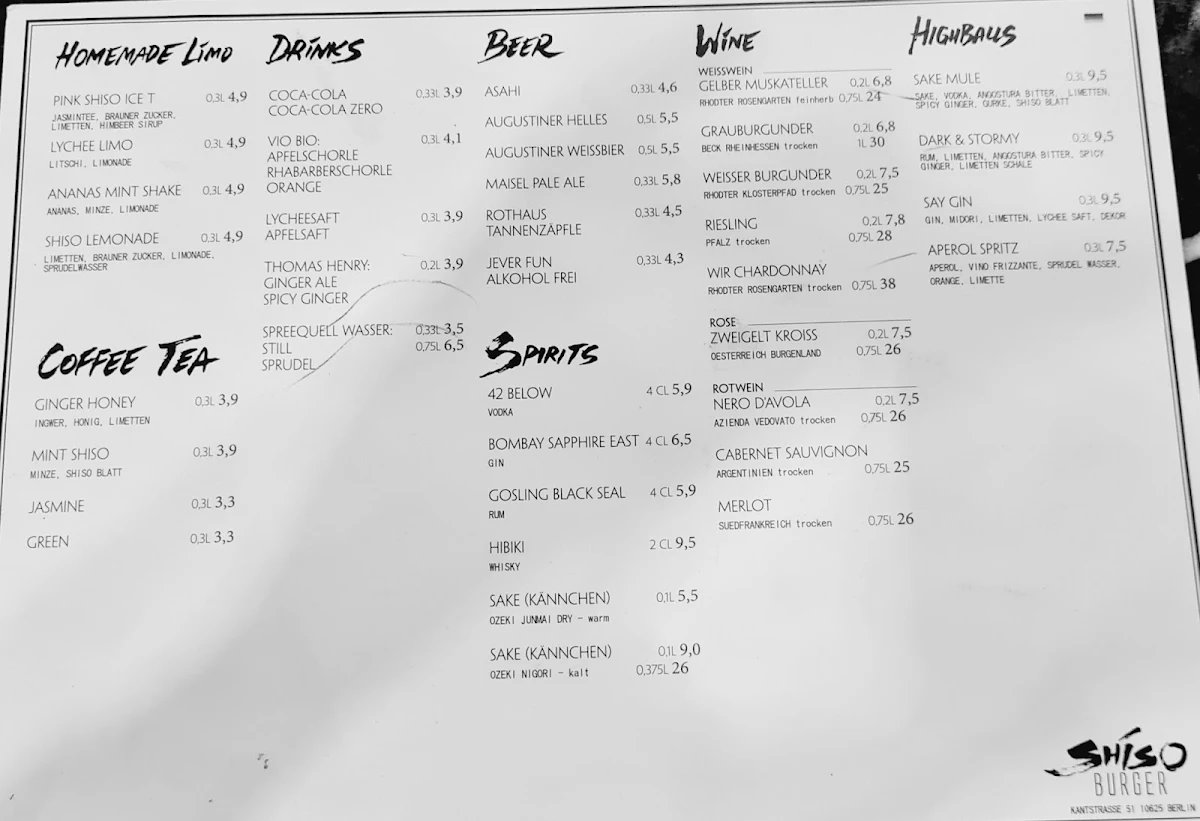 HOMEMADE LIMO
PINK SHISO ICE T 0,3L 4,9
JASMINTEE, BRAUNER ZUCKER,
LIMETTEN, HIMBEER SIRUP
LYCHEE LIMO 0,3L 4,9
LITSCHI, LIMONADE
ANANAS MINT SHAKE 0,3L 4,9
ANANAS, MINZE, LIMONADE
SHISO LEMONADE 0,3L 4,9
LIMETTEN, BRAUNER ZUCKER, LIMONADE,
SPRUDELWASSER
COFFEE TEA
GINGER HONEY 0,3L 3,9
INGWER, HONIG, LIMETTEN
MINT SHISO 0,3L 3,9
MINZE, SHISO BLATT
JASMINE 0,3L 3,3
GREEN 0,3L 3,3
DRINKS
COCA-COLA 0,33L 3,9
COCA-COLA ZERO
VIO BIO: 0,3L 4,1
APFELSCHORLE
RHABARBERSCHORLE
ORANGE
LYCHEESAFT 0,3L 3,9
APFELSAFT
THOMAS HENRY: 0,2L 3,9
GINGER ALE
SPICY GINGER
SPREEQUELL WASSER: 0,33L 3,5
STILL 0,75L 6,5
SPRUDEL
BEER
ASAHI 0,33L 4,6
AUGUSTINER HELLES 0,5L 5,5
AUGUSTINER WEISSBIER 0,5L 5,5
MAISEL PALE ALE 0,33L 5,8
ROTHAUS 0,33L 4,5
TANNENZÄPFLE
JEVER FUN 0,33L 4,3
ALKOHOL FREI
SPIRITS
42 BELOW 4 CL 5,9
VODKA
BOMBAY SAPPHIRE EAST 4 CL 6,5
GIN
GOSLING BLACK SEAL 4 CL 5,9
RUM
HIBIKI 2 CL 9,5
WHISKY
SAKE (KÄNNCHEN) 0,1L 5,5
OZEKI JUNMAI DRY - warm
SAKE (KÄNNCHEN) 0,1L 9,0
OZEKI NIGORI - kalt 0,375L 26
WINE
WEISSWEIN
GELBER MUSKATELLER 0,2L 6,8
RHODTER ROSENGARTEN feinherb 0,75L 24
GRAUBURGUNDER 0,2L 6,8
BECK RHEINHESSEN trocken 1L 30
WEISSER BURGUNDER 0,2L 7,5
RHODTER KLOSTERPFAD trocken 0,75L 25
RIESLING 0,2L 7,8
PFALZ trocken 0,75L 28
WIR CHARDONNAY
RHODTER ROSENGARTEN trocken 0,75L 38
ROSE
ZWEIGELT KROISS 0,2L 7,5
OESTERREICH BURGENLAND 0,75L 26
ROTWEIN
NERO D'AVOLA 0,2L 7,5
AZIENDA VEDOVATO trocken 0,75L 26
CABERNET SAUVIGNON
ARGENTINIEN trocken 0,75L 25
MERLOT
SUEDFRANKREICH trocken 0,75L 26
HIGHBALLS
SAKE MULE 0,3L 9,5
SAKE, VODKA, ANGOSTURA BITTER, LIMETTEN,
SPICY GINGER, GURKE, SHISO BLATT
DARK & STORMY 0,3L 9,5
RUM, LIMETTEN, ANGOSTURA BITTER, SPICY
GINGER, LIMETTEN SCHALE
SAY GIN 0,3L 9,5
GIN, MIDORI, LIMETTEN, LYCHEE SAFT, DEKOR
APEROL SPRITZ 0,3L 7,5
APEROL, VINO FRIZZANTE, SPRUDEL WASSER,
ORANGE, LIMETTE
SHISO
BURGER
KANTSTRASSE 51 10625 BERLIN